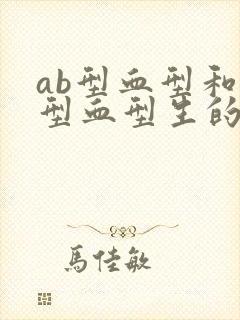 ab型血型和
型血型生的
馬佳敏